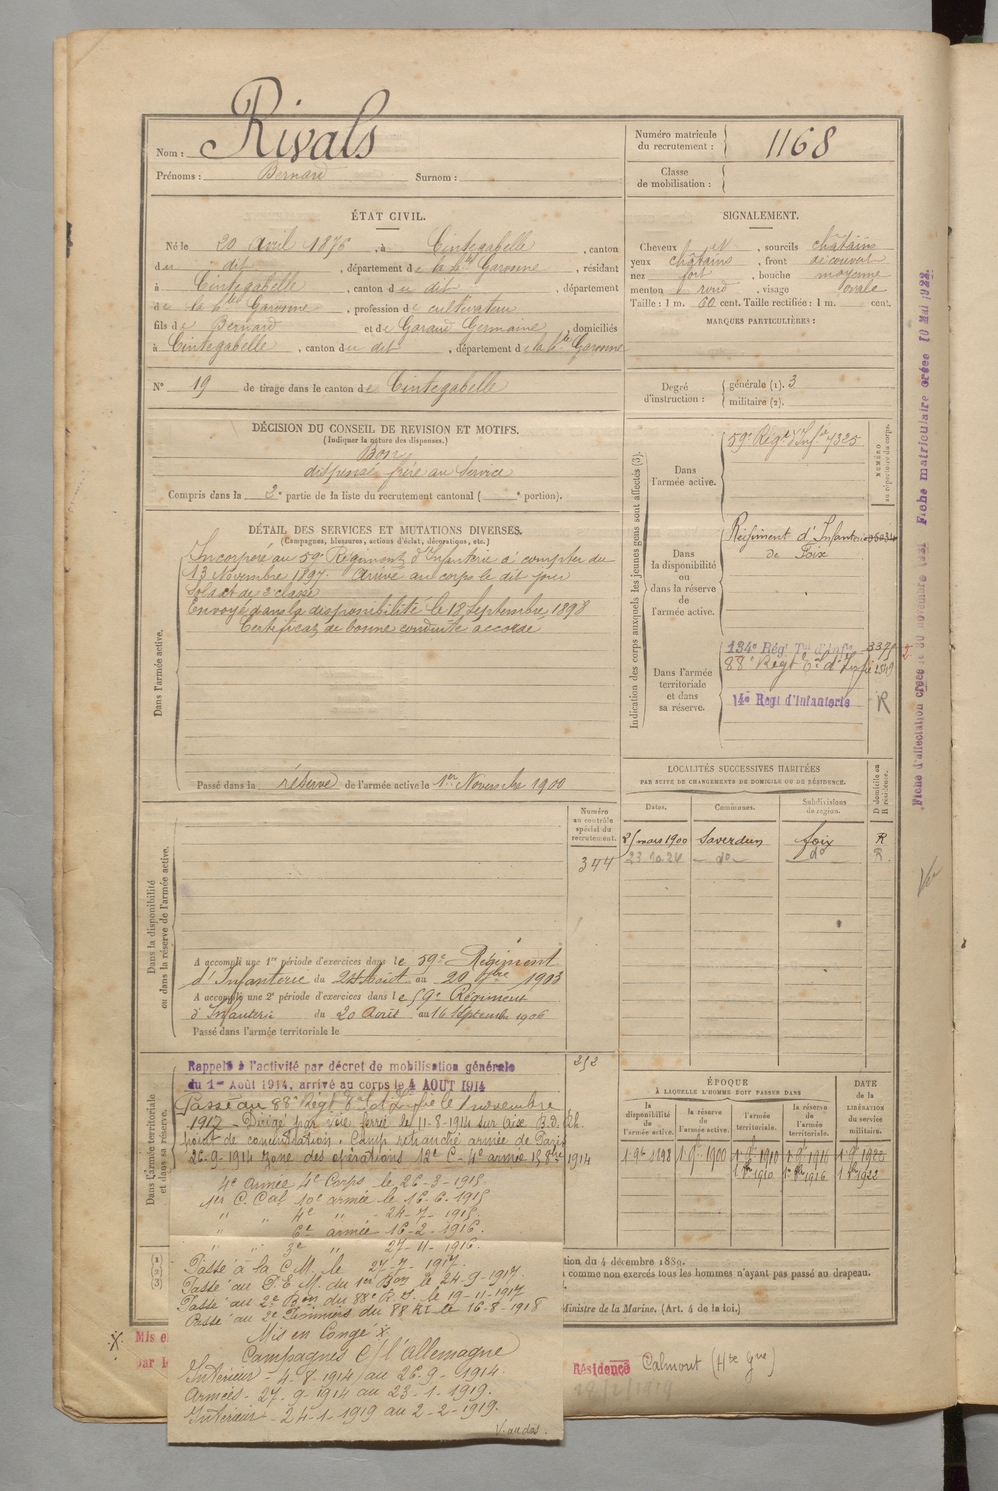 Nom : Rivals
Prénoms : Bernard Surnom :
Numéro matricule du recrutement : 1168
Classe de mobilisation :
ÉTAT CIVIL.
Né le 20 Avril 1875, à Cintegabelle, canton
du dit, département de la hte Garonne, résidant
à Cintegabelle, canton du dit, département
de la hte Garonne, profession de cultivateur
fils de Bernard et de Garaud Germaine, domiciliés
à Cintegabelle, canton du dit, département de la hte Garonne
N° 19 de tirage dans le canton de Cintegabelle
SIGNALEMENT.
Cheveux et, sourcils châtains
yeux châtains, front découvert
nez fort, bouche moyenne
menton rond, visage ovale
Taille : 1 m. 60 cent. Taille rectifiée : 1 m. cent.
MARQUES PARTICULIÈRES :
Degré d'instruction : générale (1). 3
militaire (2).
DÉCISION DU CONSEIL DE REVISION ET MOTIFS.
(Indiquer la nature des dispenses.)
Bon
dispensé frère au service
Compris dans la 2e partie de la liste du recrutement cantonal ( e portion).
DÉTAIL DES SERVICES ET MUTATIONS DIVERSES.
(Campagnes, blessures, actions d'éclat, décorations, etc.)
Dans l'armée active.
Incorporé au 59e Régiment d'Infanterie à compter du
13 Novembre 1897. Arrivé au corps le dit jour
Soldat de 2e classe
Envoyé dans la disponibilité le 18 Septembre 1898
Certificat de bonne conduite accordé
Passé dans la réserve de l'armée active le 1er Novembre 1900
Indication des corps auxquels les jeunes gens sont affectés (3).
NUMÉRO au répertoire du corps.
Dans l'armée active.
59e Régt d'Infie 7325
Dans la disponibilité ou dans la réserve de l'armée active.
Régiment d'Infanterie
de Foix
Dans l'armée territoriale et dans sa réserve.
134e Régt Tal d'Infie
88e Régt d'Infie
14e Regt d'Infanterie R
LOCALITÉS SUCCESSIVES HABITÉES
PAR SUITE DE CHANGEMENTS DE DOMICILE OU DE RÉSIDENCE.
Dates. Communes. Subdivisions de région. D domicile ou R résidence.
25 mars 1900 Saverdun Foix R
23.10.24 do do R.
Dans la disponibilité ou dans la réserve de l'armée active.
Numéro au contrôle spécial du recrutement.
344
A accompli une 1re période d'exercices dans le 59e Régiment
d'Infanterie du 24 Août au 20 7bre 1903
A accompli une 2e période d'exercices dans le 59e Régiment
d'Infanterie du 20 Août au 16 Septembre 1906
Passé dans l'armée territoriale le
Dans l'armée territoriale et dans sa réserve.
252
Rappelé à l'activité par décret de mobilisation générale
du 1er Août 1914, arrivé au corps le 4 AOUT 1914
Passé au 88e Régt le 1 novembre
1917 - Dirigé par voie ferrée le 11-8-1914 sur
point de concentration. Camp retranché armée de Paris
26-9-1914 zone des opérations 12e C - 4e armée 1914
4e Armée 4e Corps le 26-3-1915.
1er C. Cal 10e armée le 16-6-1915
" " 4e " - 24-7-1915.
" " 6e armée - 16-2-1916.
" " 3e " 27-11-1916.
Passé à la C.M. le 27-7-1917.
Passé au P.E.M. du 1er Bon le 24-9-1917
Passé au 2e Bon du 88e R.I. le 19-11-1917
Passé au 2e Pionniers du 88 RI le 16-8-1918
Mis en Congé X.
Campagnes c/ l'Allemagne
Intérieur - 4-8-1914 au 26-9-1914.
Armées - 27-9-1914 au 23-1-1919.
Intérieur - 24-1-1919 au 2-2-1919.
V. au dos.
ÉPOQUE
À LAQUELLE L'HOMME DOIT PASSER DANS
la disponibilité de l'armée active. la réserve de l'armée active. l'armée territoriale. la réserve de l'armée territoriale. DATE de la LIBÉRATION du service militaire.
1 9bre 1898 1 9bre 1900 1 9bre 1910 1 9bre 1916 1 9bre 1922
1 8bre 1910 1 8bre 1916 1 8bre 1922
tion du 4 décembre 1889.
comme non exercés tous les hommes n'ayant pas passé au drapeau.
Ministre de la Marine. (Art. 4 de la loi.)
X. Mis e
par l
Résidence Calmont (Hte Gne)
Fiche matriculaire créée 10 Mai 1922.